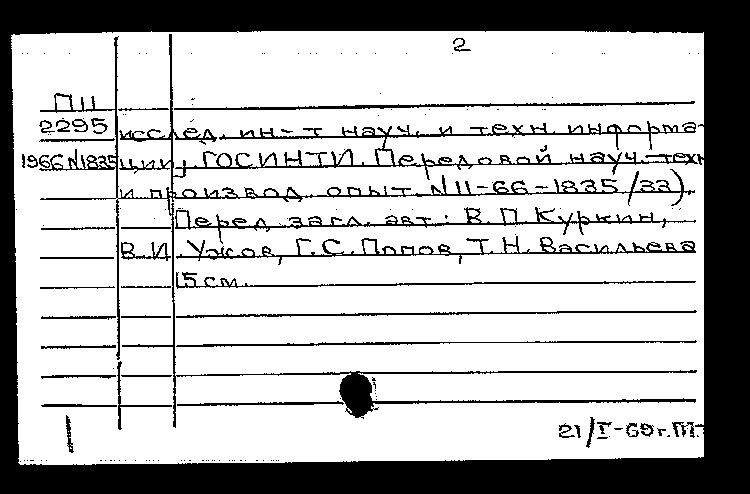 2
П11
2295 исслед. ин-т науч. и техн. информа-
1966 N1835 ции, ГОСИНТИ. Передовой науч.-техн
и производ. опыт. N11-66-1835/33).
Перед загл. авт.: В. П. Куркин,
В. И. Ужов, Г. С. Попов, Т. Н. Васильева
15 см.
21/I-69 г.